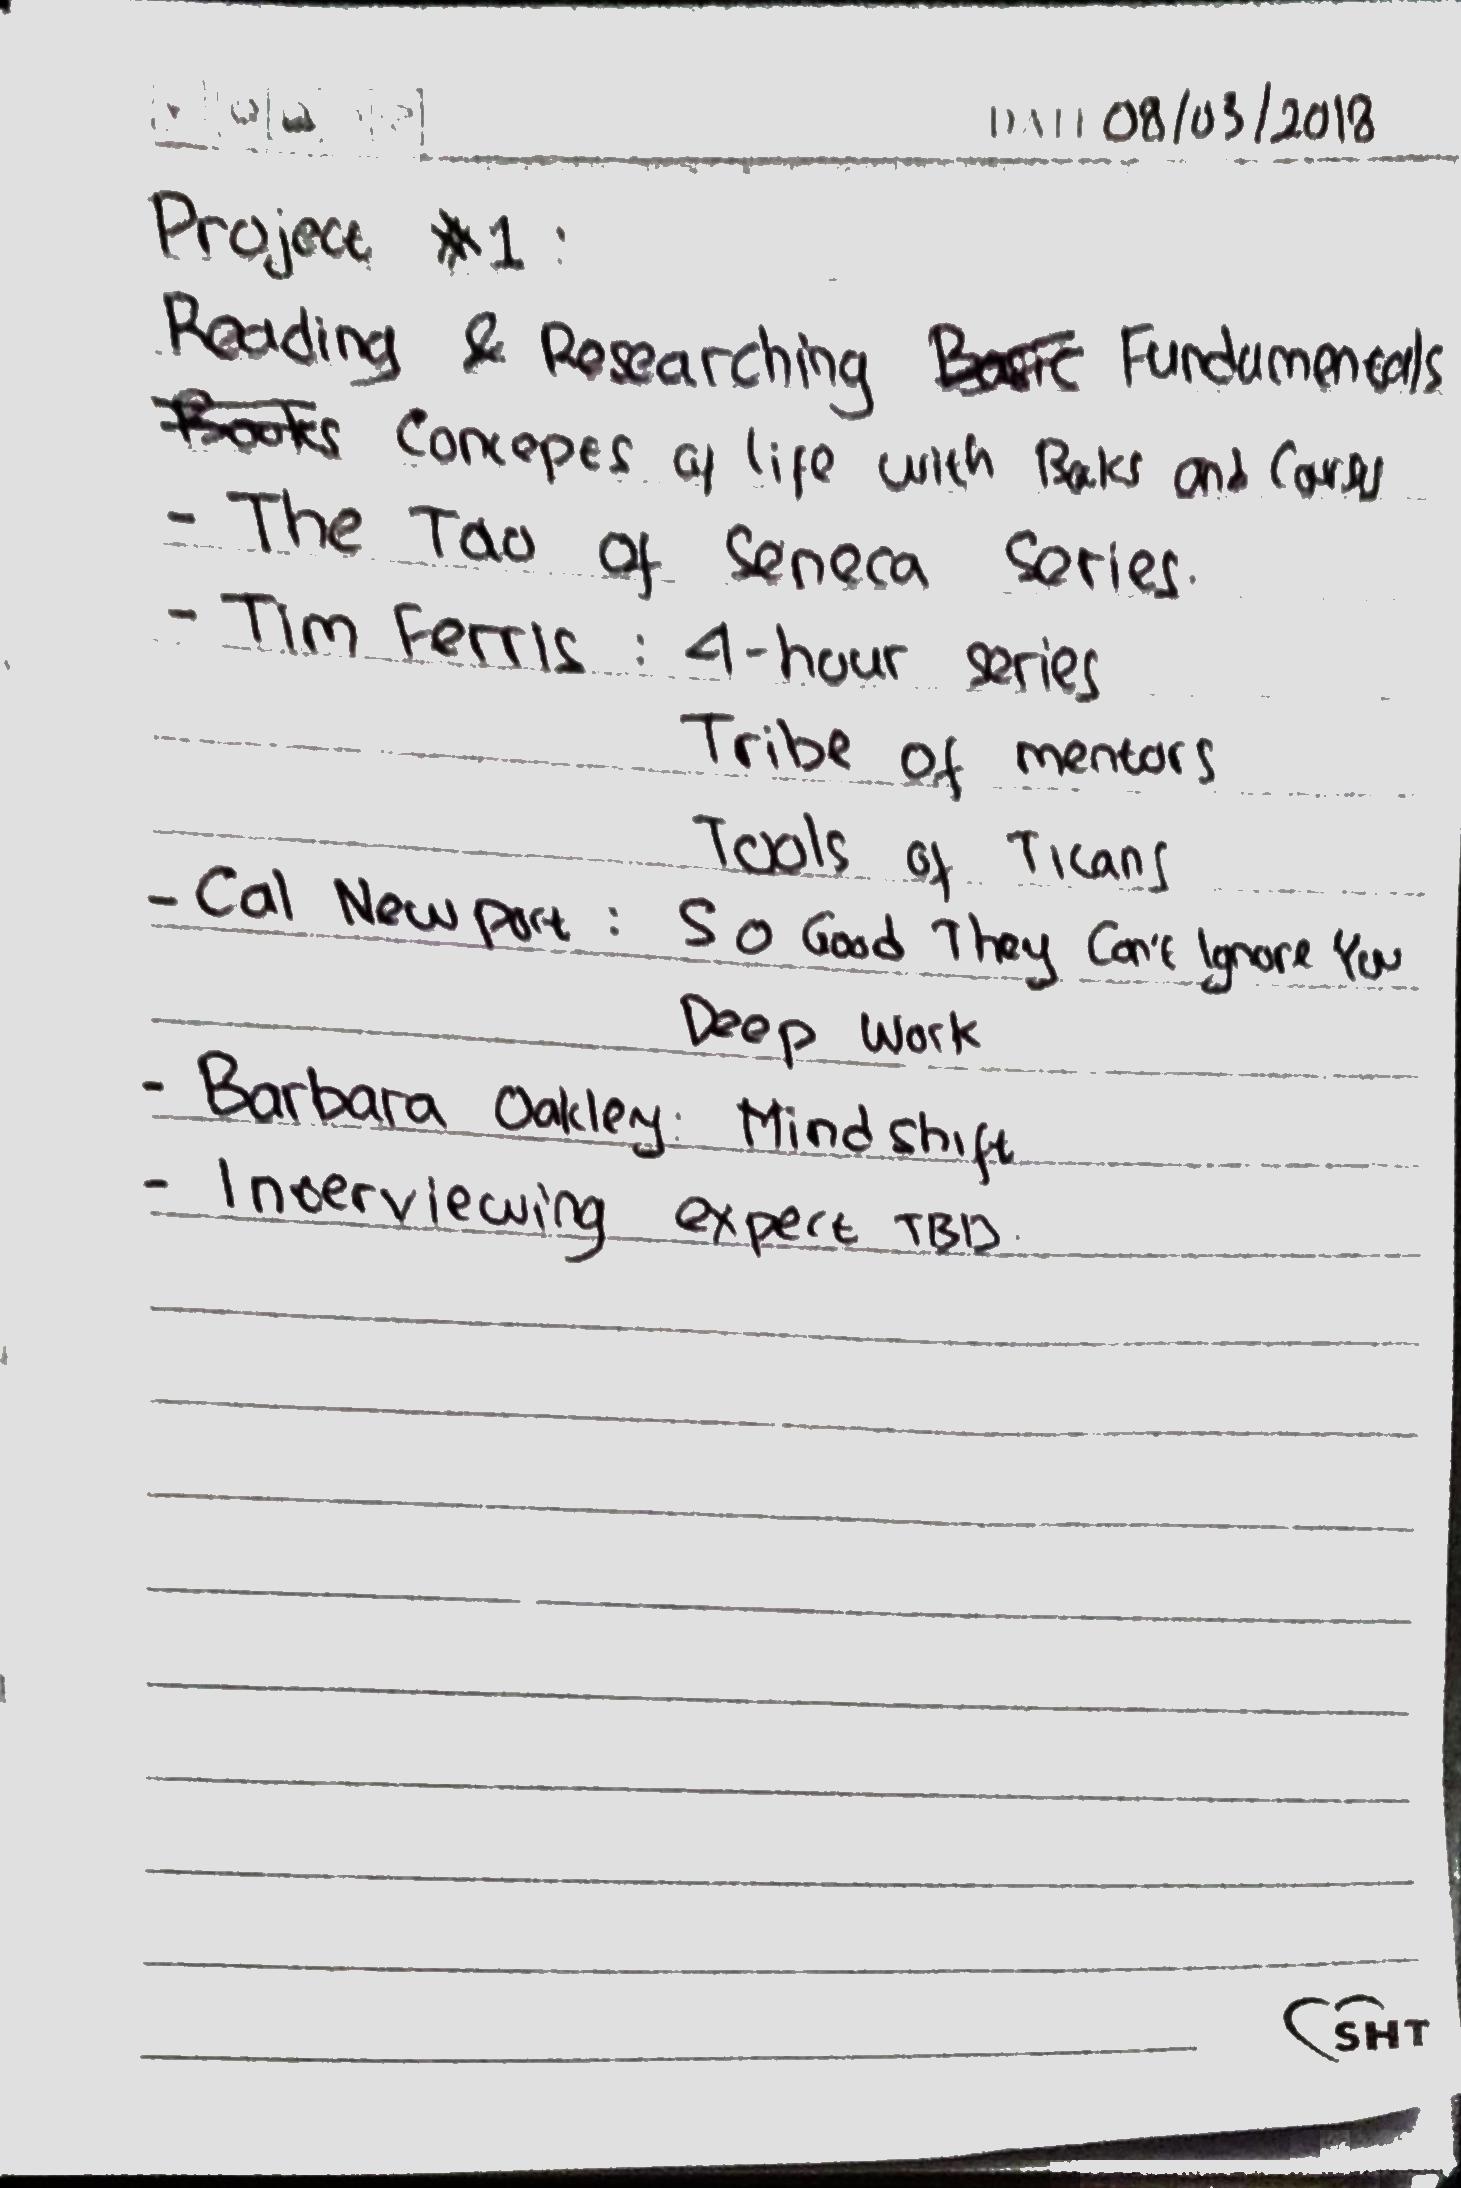 DATE 08/03/2018
Project #1 :
Reading & Researching Basic Fundamentals
Books Concepts of life with Books and Courses
- The Tao of Seneca Series.
- Tim Ferris : 4-hour series
Tribe of mentors
Tools of Titans
- Cal Newport : So Good They Can't Ignore You
Deep Work
- Barbara Oakley: Mindshift
- Interviewing expert TBD.
SHT